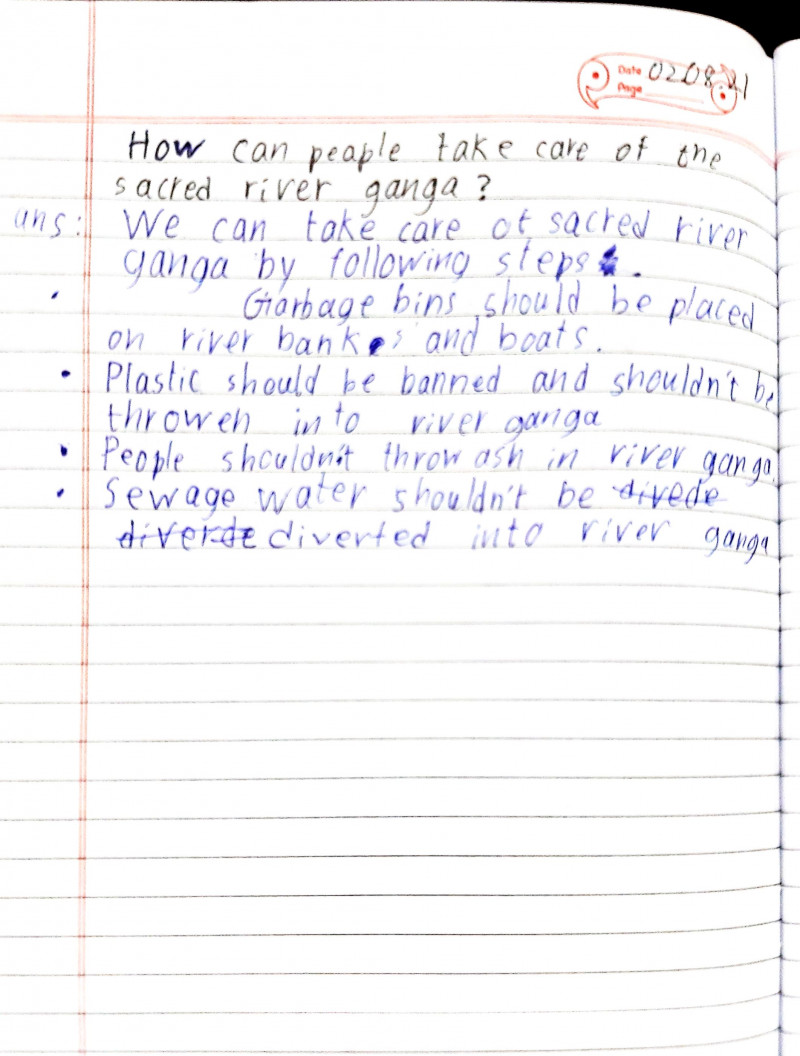 Date 02.08.21
Page
How can peaple take care of the
sacred river ganga?
ans: We can take care of sacred river
ganga by following steps.
• Garbage bins should be placed
on river banks and boats.
• Plastic should be banned and shouldn't be
throwen into river ganga
• People shouldn't throw ash in river ganga.
• Sewage water shouldn't be divede
diverde diverted into river ganga